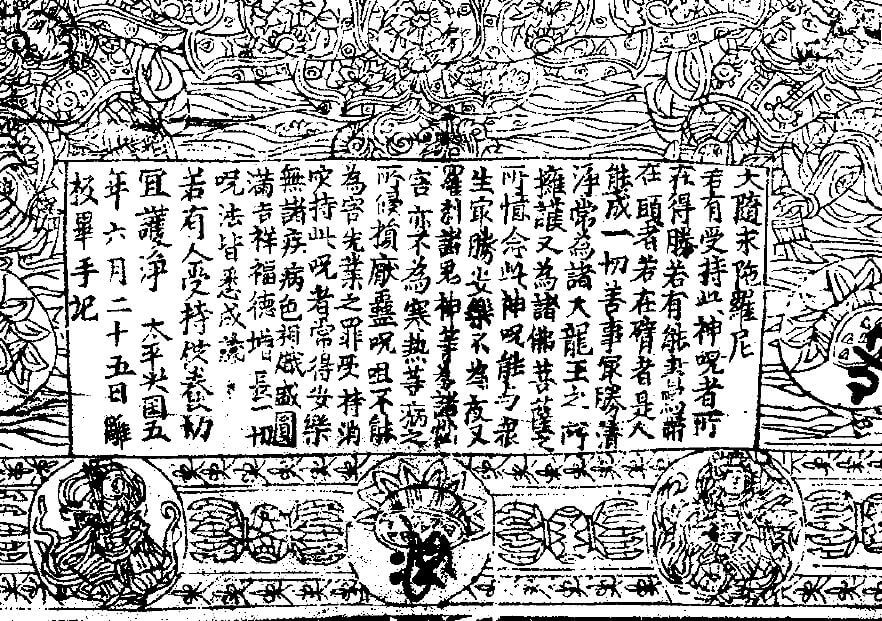 大隨求陀羅尼
若有受持此神呪者所
在得勝若有能書寫帶
在頭者若在臂者是人
能成一切善事最勝清
淨常為諸天龍王之所
擁護又為諸佛菩薩之
所憶念此神呪能与眾
生最勝安樂不為夜叉
羅刹諸鬼神等為諸惱
害亦不為寒熱等病之
所侵損厭蠱呪咀不能
為害先業之罪受持消
持此呪者常得安樂
無諸疾病色相熾盛圓
滿吉祥福德增長一切
呪法皆悉成就
若有人受持供養切
宜護淨 太平興国五
年六月二十五日雕
板畢手記